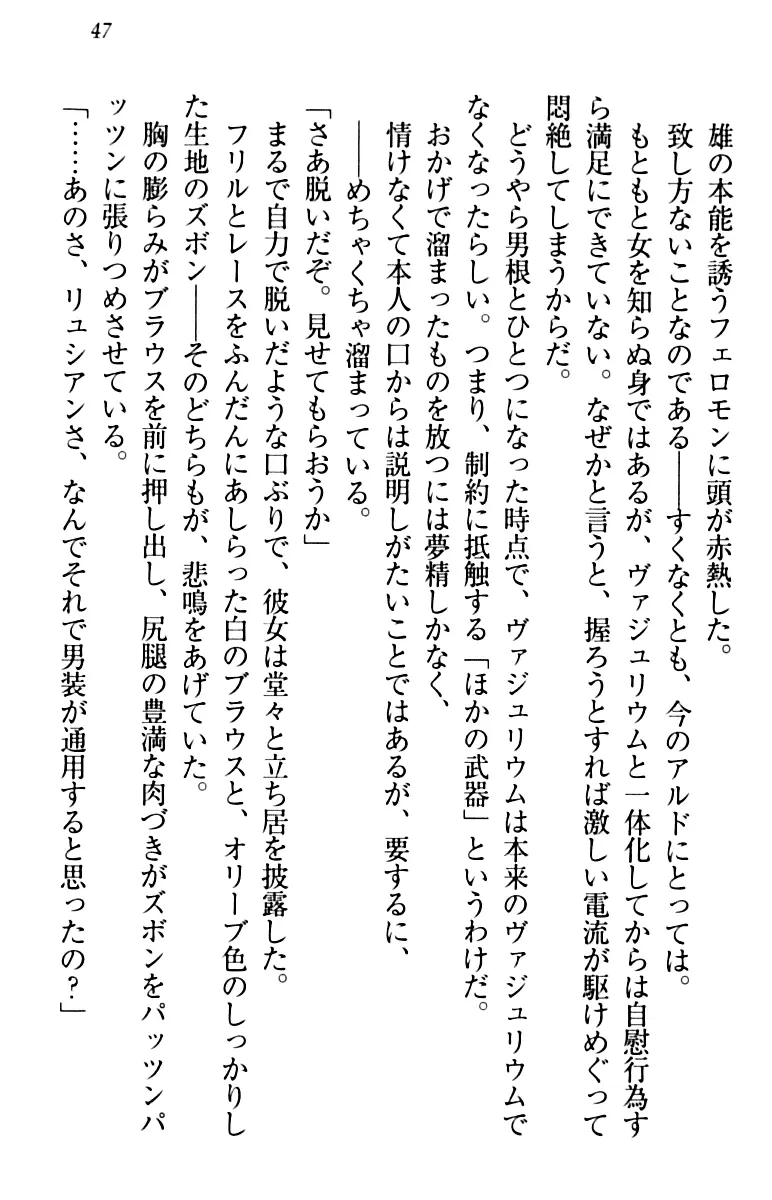 47
雄の本能を誘うフェロモンに頭が赤熱した。
致し方ないことなのである――すくなくとも、今のアルドにとっては。
もともと女を知らぬ身ではあるが、ヴァジュリウムと一体化してからは自慰行為す
ら満足にできていない。なぜかと言うと、握ろうとすれば激しい電流が駆けめぐって
悶絶してしまうからだ。
どうやら男根とひとつになった時点で、ヴァジュリウムは本来のヴァジュリウムで
なくなったらしい。つまり、制約に抵触する「ほかの武器」というわけだ。
おかげで溜まったものを放つには夢精しかなく、
情けなくて本人の口からは説明しがたいことではあるが、要するに、
――めちゃくちゃ溜まっている。
「さあ脱いだぞ。見せてもらおうか」
まるで自力で脱いだような口ぶりで、彼女は堂々と立ち居を披露した。
フリルとレースをふんだんにあしらった白のブラウスと、オリーブ色のしっかりし
た生地のズボン――そのどちらもが、悲鳴をあげていた。
胸の膨らみがブラウスを前に押し出し、尻腿の豊満な肉づきがズボンをパッツンパ
ッツンに張りつめさせている。
「……あのさ、リュシアンさ、なんでそれで男装が通用すると思ったの？」